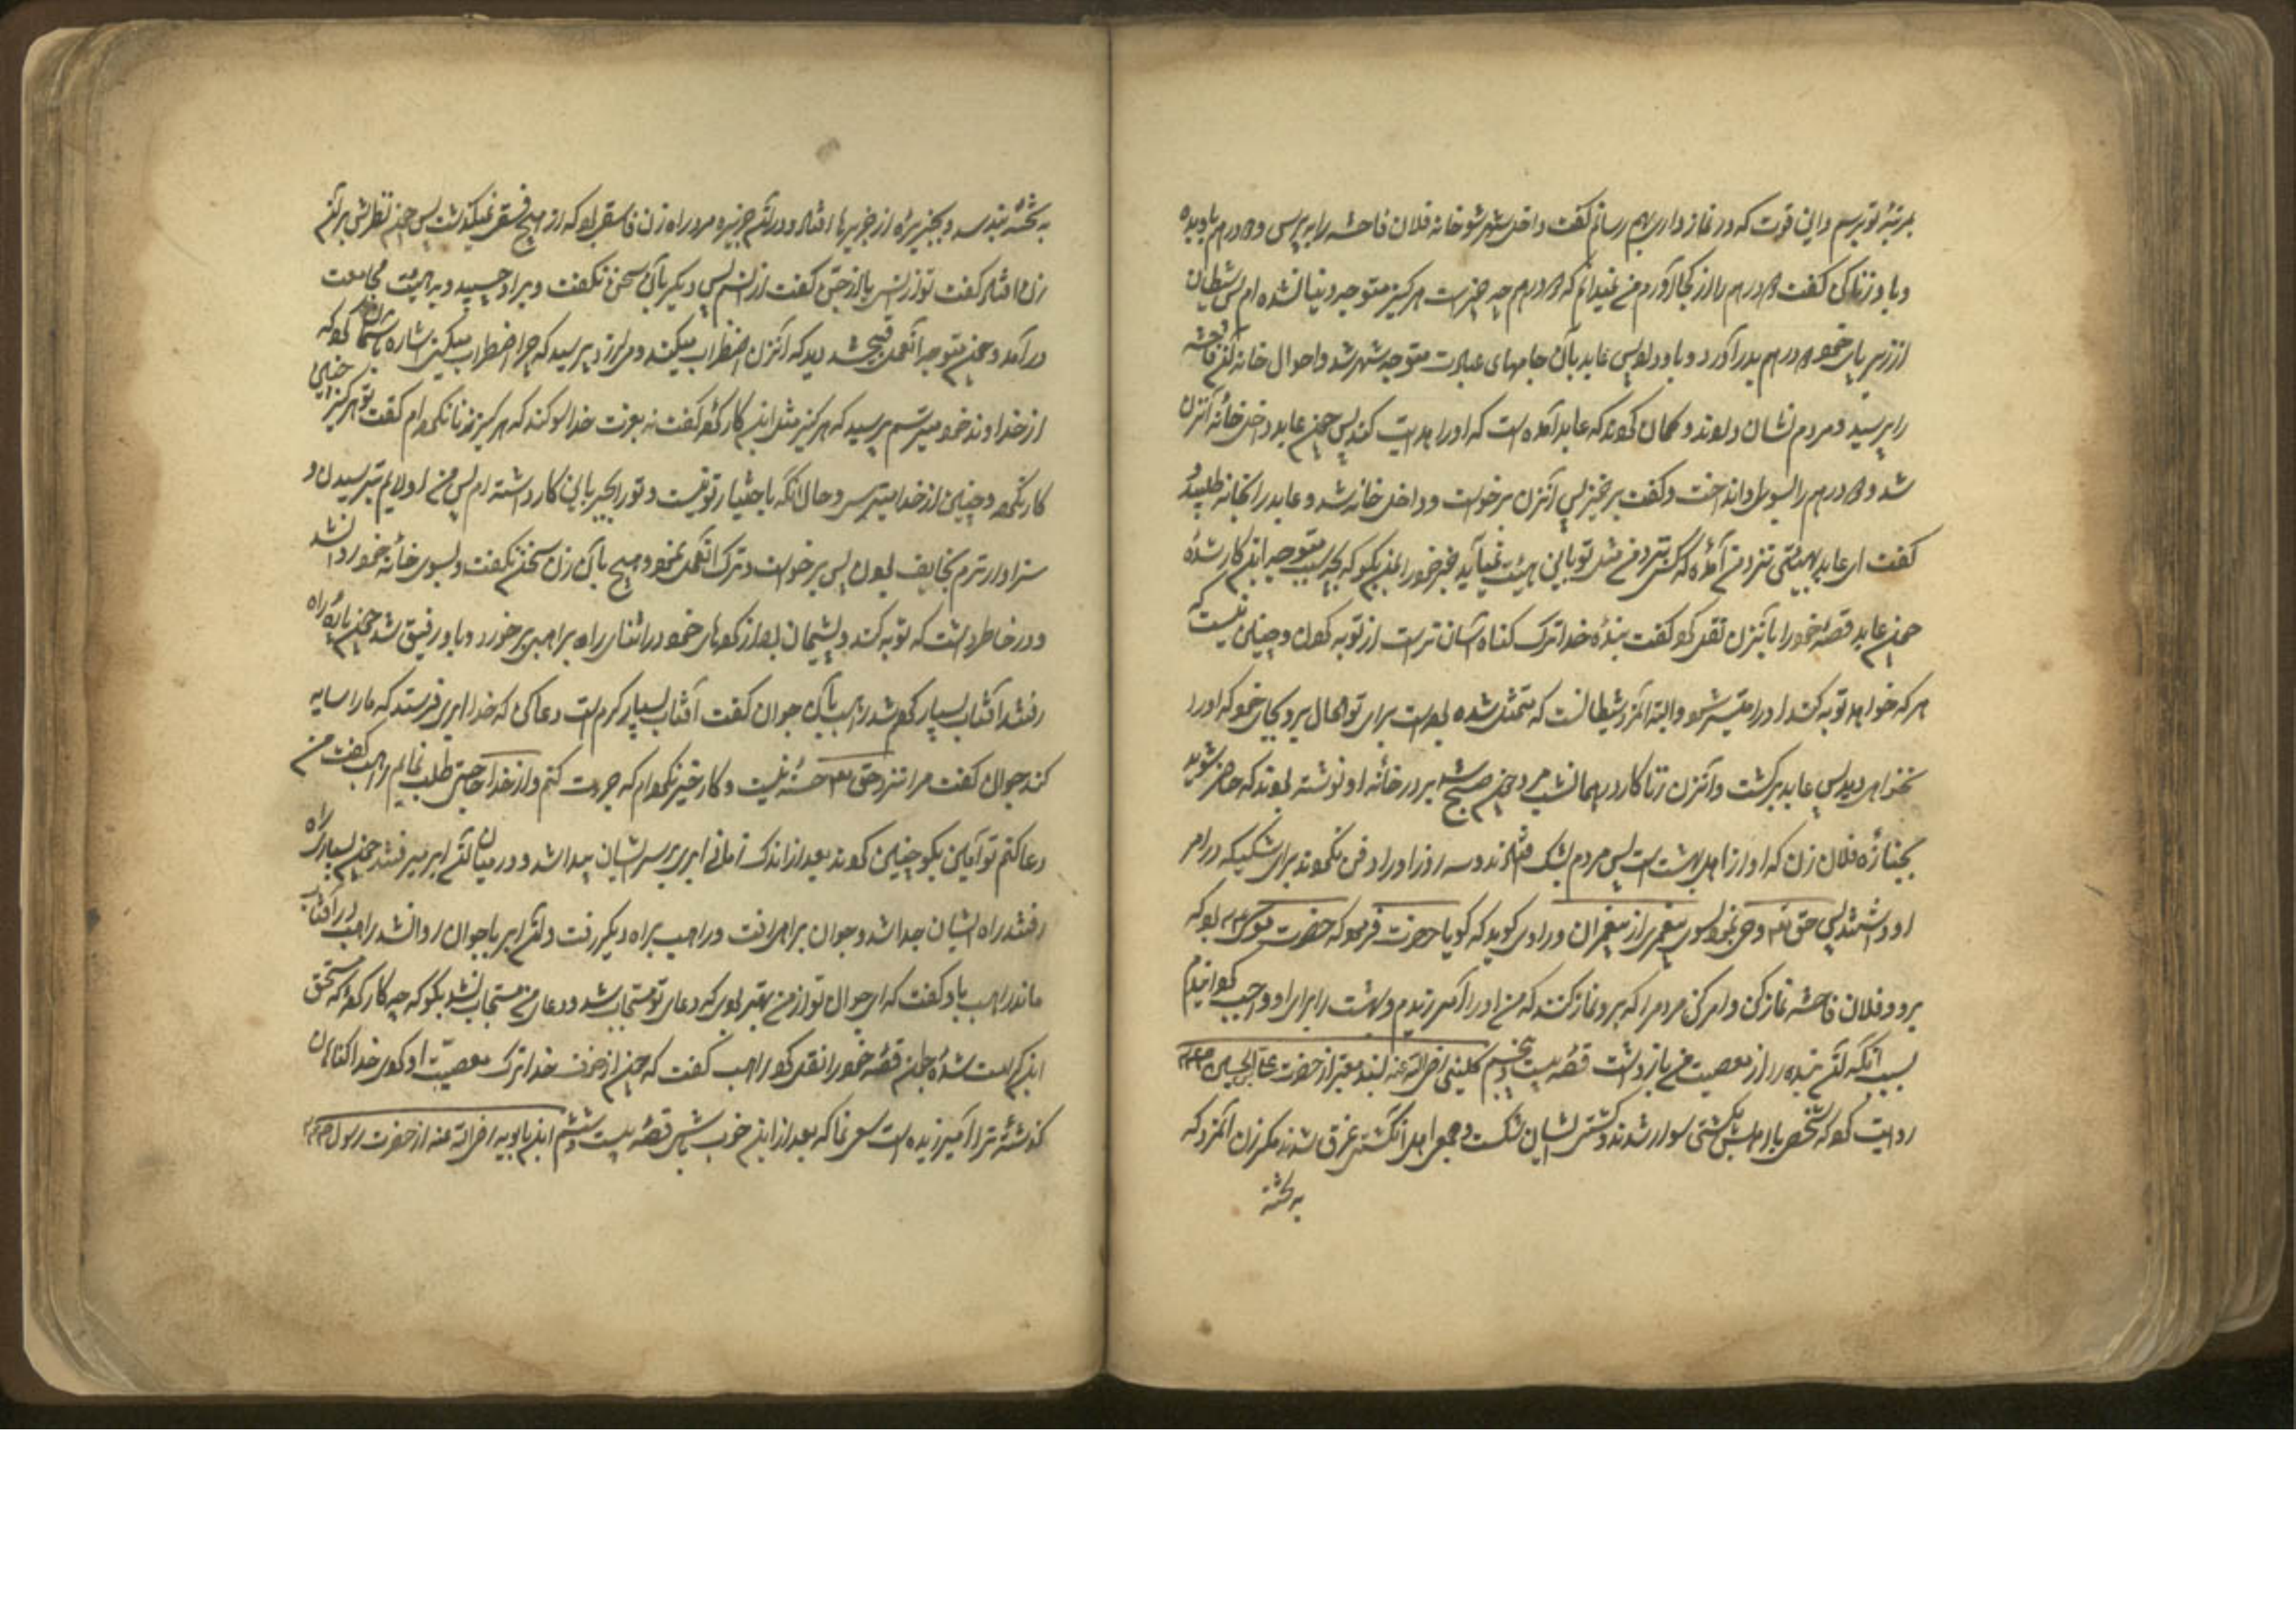 بمرتبهٔ تو برسم و این قوت که در نماز داری بهم رسانم گفت داخل شهر شو خانه فلان فاحشه را بپرس و ۲ درهم باو بده
و با او زنا کن گفت ۲ درهم را از کجا آورم من نمیدانم که ۲ درهم چه چیز است هرگز متوجه دنیا نشده ام پس شیطان
از زیر پای خود ۲ درهم بدر آورد و باو داد پس عابد بآن جامهای عبادت متوجه شهر شد و احوال خانه آن فاحشه
را پرسید و مردم نشان دادند و گمان کردند که عابد آمده است که او را هدایت کند پس چون عابد داخل خانه آنزن
شد و ۲ درهم را بسوی او انداخت و گفت برخیز پس آنزن برخواست و داخل خانه شد و عابد را بخانه طلبید و
گفت ای عابد بهیئتی نزد من آمدهٔ که کسی نزد من مثل تو باین هیئت نمیآید خبر خود را بمن بگو که بچه سبب متوجه این کار شدهٔ
چون عابد قصهٔ خود را بآنزن نقل کرد گفت بندهٔ خدا ترک گناه آسان تر است از توبه کردن و چنین نیست که
هر که خواهد توبه کند او را میسر شود و البته آنمرد شیطانست که متمثل شده بوده است برای تو الحال برو بجای خود که او را
نخواهی دید پس عابد برگشت و آنزن زناکار در همانشب مرد چون صبح شد بر در خانهٔ او نوشته بودند که حاضر شوید
بجنازهٔ فلان زن که او از اهل بهشت است پس مردم بشک افتادند و سه روز او را دفن نکردند برای شکیکه در امر
او داشتند پس حق تع وحی نمود بسوی پیغمبری از پیغمبران و راوی گوید که گویا حضرت فرمود که حضرت موسی ع بود که
برو و فلان فاحشه نماز کن و امر کن مردم را که بر او نماز کنند که من او را آمرزیدم و بهشت را برای او واجب گردانیدم
بسبب آنکه آن بنده را از معصیت من باز داشت قصهٔ بیست و پنجم کلینی رضی الله عنه بسند معتبر از حضرت علی بن الحسین ع
روایت کرده که شخصی با اهلش بکشتی سوار شدند و کشتی ایشان شکست و جمیع اهل آنکشتی غرق شدند مگر زن آنمرد که
به تختهٔ
به تختهٔ بند شد و بجزیرهٔ از جزیرها افتاد و در آن جزیره مرد راه زن فاسقی بود که از هیچ فسقی نمیگذشت پس چون نظرش بر آن
زن افتاد گفت تو از انسی یا از جنی گفت از انسم پس دیگر با آن سخن نگفت و بر او چسپید و به هیئت مجامعت
در آمد و چون متوجه آنعمل قبیح شد دید که آنزن اضطراب میکند و میلرزد پرسید که چرا اضطراب میکنی اشاره باسمان کرد که
از خداوند خود میترسم پرسید که هرگز مثل این کار کردهٔ گفت نه بعزت خدا سوگند که هرگز زنا نکرده ام گفت تو هرگز چنین
کار نکردهٔ و چنین از خدا میترسی و حال آنکه باختیار تو نیست و تو را بجبر باین کار داشته ام پس من اولایم بترسیدن و
سزاوارترم بخایف بودن پس برخواست و ترک آنعمل نمود و هیچ با آن زن سخن نگفت و بسوی خانهٔ خود روانشد
و در خاطر داشت که توبه کند و پشیمان بود از کردهای خود در اثنای راه براهبی برخورد و با او رفیق شد چون پارهٔ راه
رفتند آفتاب بسیار گرم شد راهب با آن جوان گفت آفتاب بسیار گرم است دعا کن که خدا ابری فرستد که ما را سایه
کند جوان گفت مرا نزد حق تع حسنهٔ نیست و کار خیر نکرده ام که جرءت کنم و از خدا حاجتی طلب نمایم راهب گفت من
دعا کنم تو آمین بگو چنین کردند بعد از اندک زمانی ابری بر سر ایشان پیدا شد و در میان آن ابر میرفتند چون بسیار راه
رفتند راه ایشان جدا شد و جوان براهی رفت و راهب براه دیگر رفت و آن ابر با جوان روانشد راهب در آفتاب
ماند راهب باو گفت که ای جوان تو از من بهتر بودی که دعای تو مستجاب شد و دعای من مستجاب نشد بگو که چه کار کردهٔ که مستحق
این کرامت شدهٔ جوان قصهٔ خود را نقل کرد راهب گفت که چون از خوف خدا ترک معصیت او کردی خدا گناهان
گذشتهٔ ترا آمرزیده است سعی نما که بعد از این خوب باشی قصهٔ بیست و ششم ابن بابویه رضی الله عنه از حضرت رسول ص